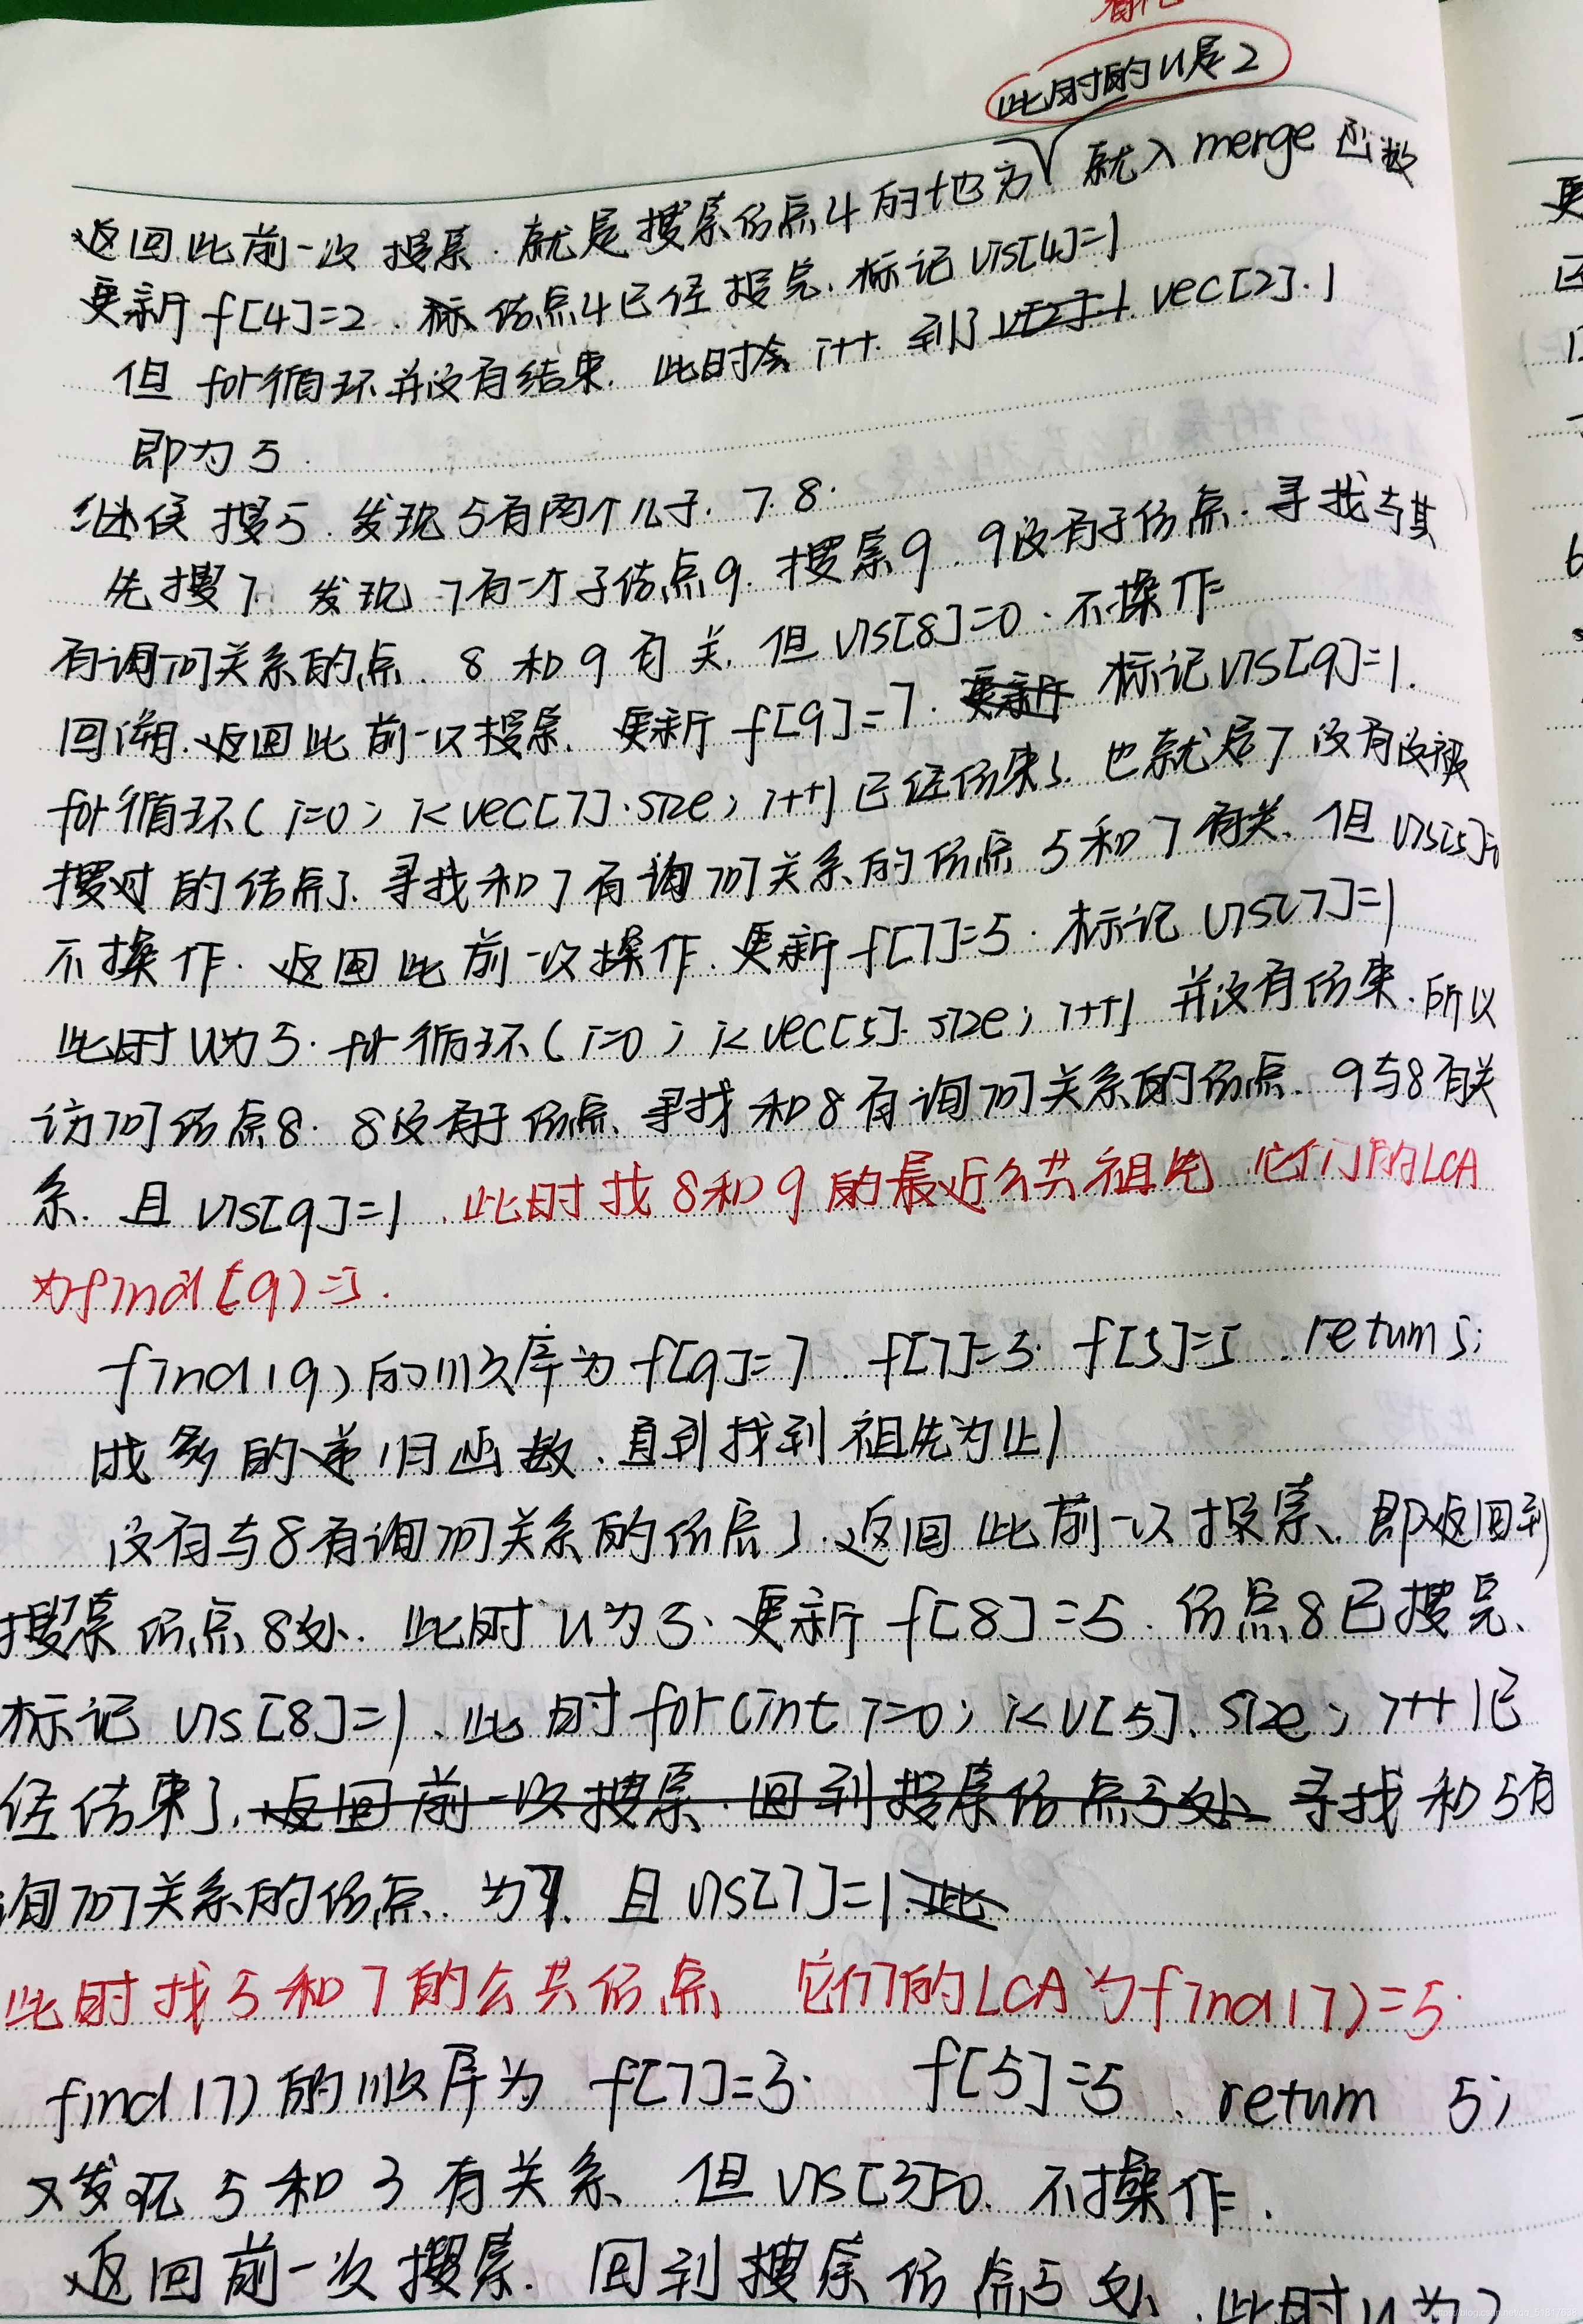 此时的u是2
返回此前一次搜索.就是搜索结点4的地方 就入merge函数
更新f[4]=2.标结点4已经搜完.标记vis[4]=1
但for循环并没有结束.此时会i++.到了vec[2].1
即为5.
继续搜5.发现5有两个儿子.7.8.
先搜7.发现7有一个子结点9.搜索9.9没有子结点.寻找与其
有询问关系的点.8和9有关.但vis[8]=0.不操作
回溯.返回此前一次搜索.更新f[9]=7.更新 标记vis[9]=1.
for循环(i=0;i<vec[7].size;i++)已经结束了.也就是7没有没被
搜过的结点了.寻找和7有询问关系的结点5和7有关.但vis[5]=0
不操作.返回此前一次操作.更新f[7]=5.标记vis[7]=1
此时u为5.for循环(i=0;i<vec[5].size;i++)并没有结束.所以
访问结点8.8没有子结点.寻找和8有询问关系的结点.9与8有关
系.且vis[9]=1.此时找8和9的最近公共祖先 它们的LCA
为find(9)=5.
find(9)的顺序为f[9]=7.f[7]=5.f[5]=5.return 5;
的递归函数.直到找到祖先为止)
没有与8有询问关系的结点了.返回此前一次搜索.即返回到
搜索结点8处.此时u为5.更新f[8]=5.结点8已搜完.
标记vis[8]=1.此时for(int i=0;i<v[5].size;i++)已
经结束了.返回前一次搜索.回到搜索结点5处 寻找和5有
询问关系的结点.为7.且vis[7]=1.此
此时找5和7的公共结点 它们的LCA为find(7)=5.
find(7)的顺序为f[7]=5. f[5]=5.return 5;
又发现5和3有关系.但vis[3]=0.不操作.
返回前一次搜索.回到搜索结点5处.此时u为2